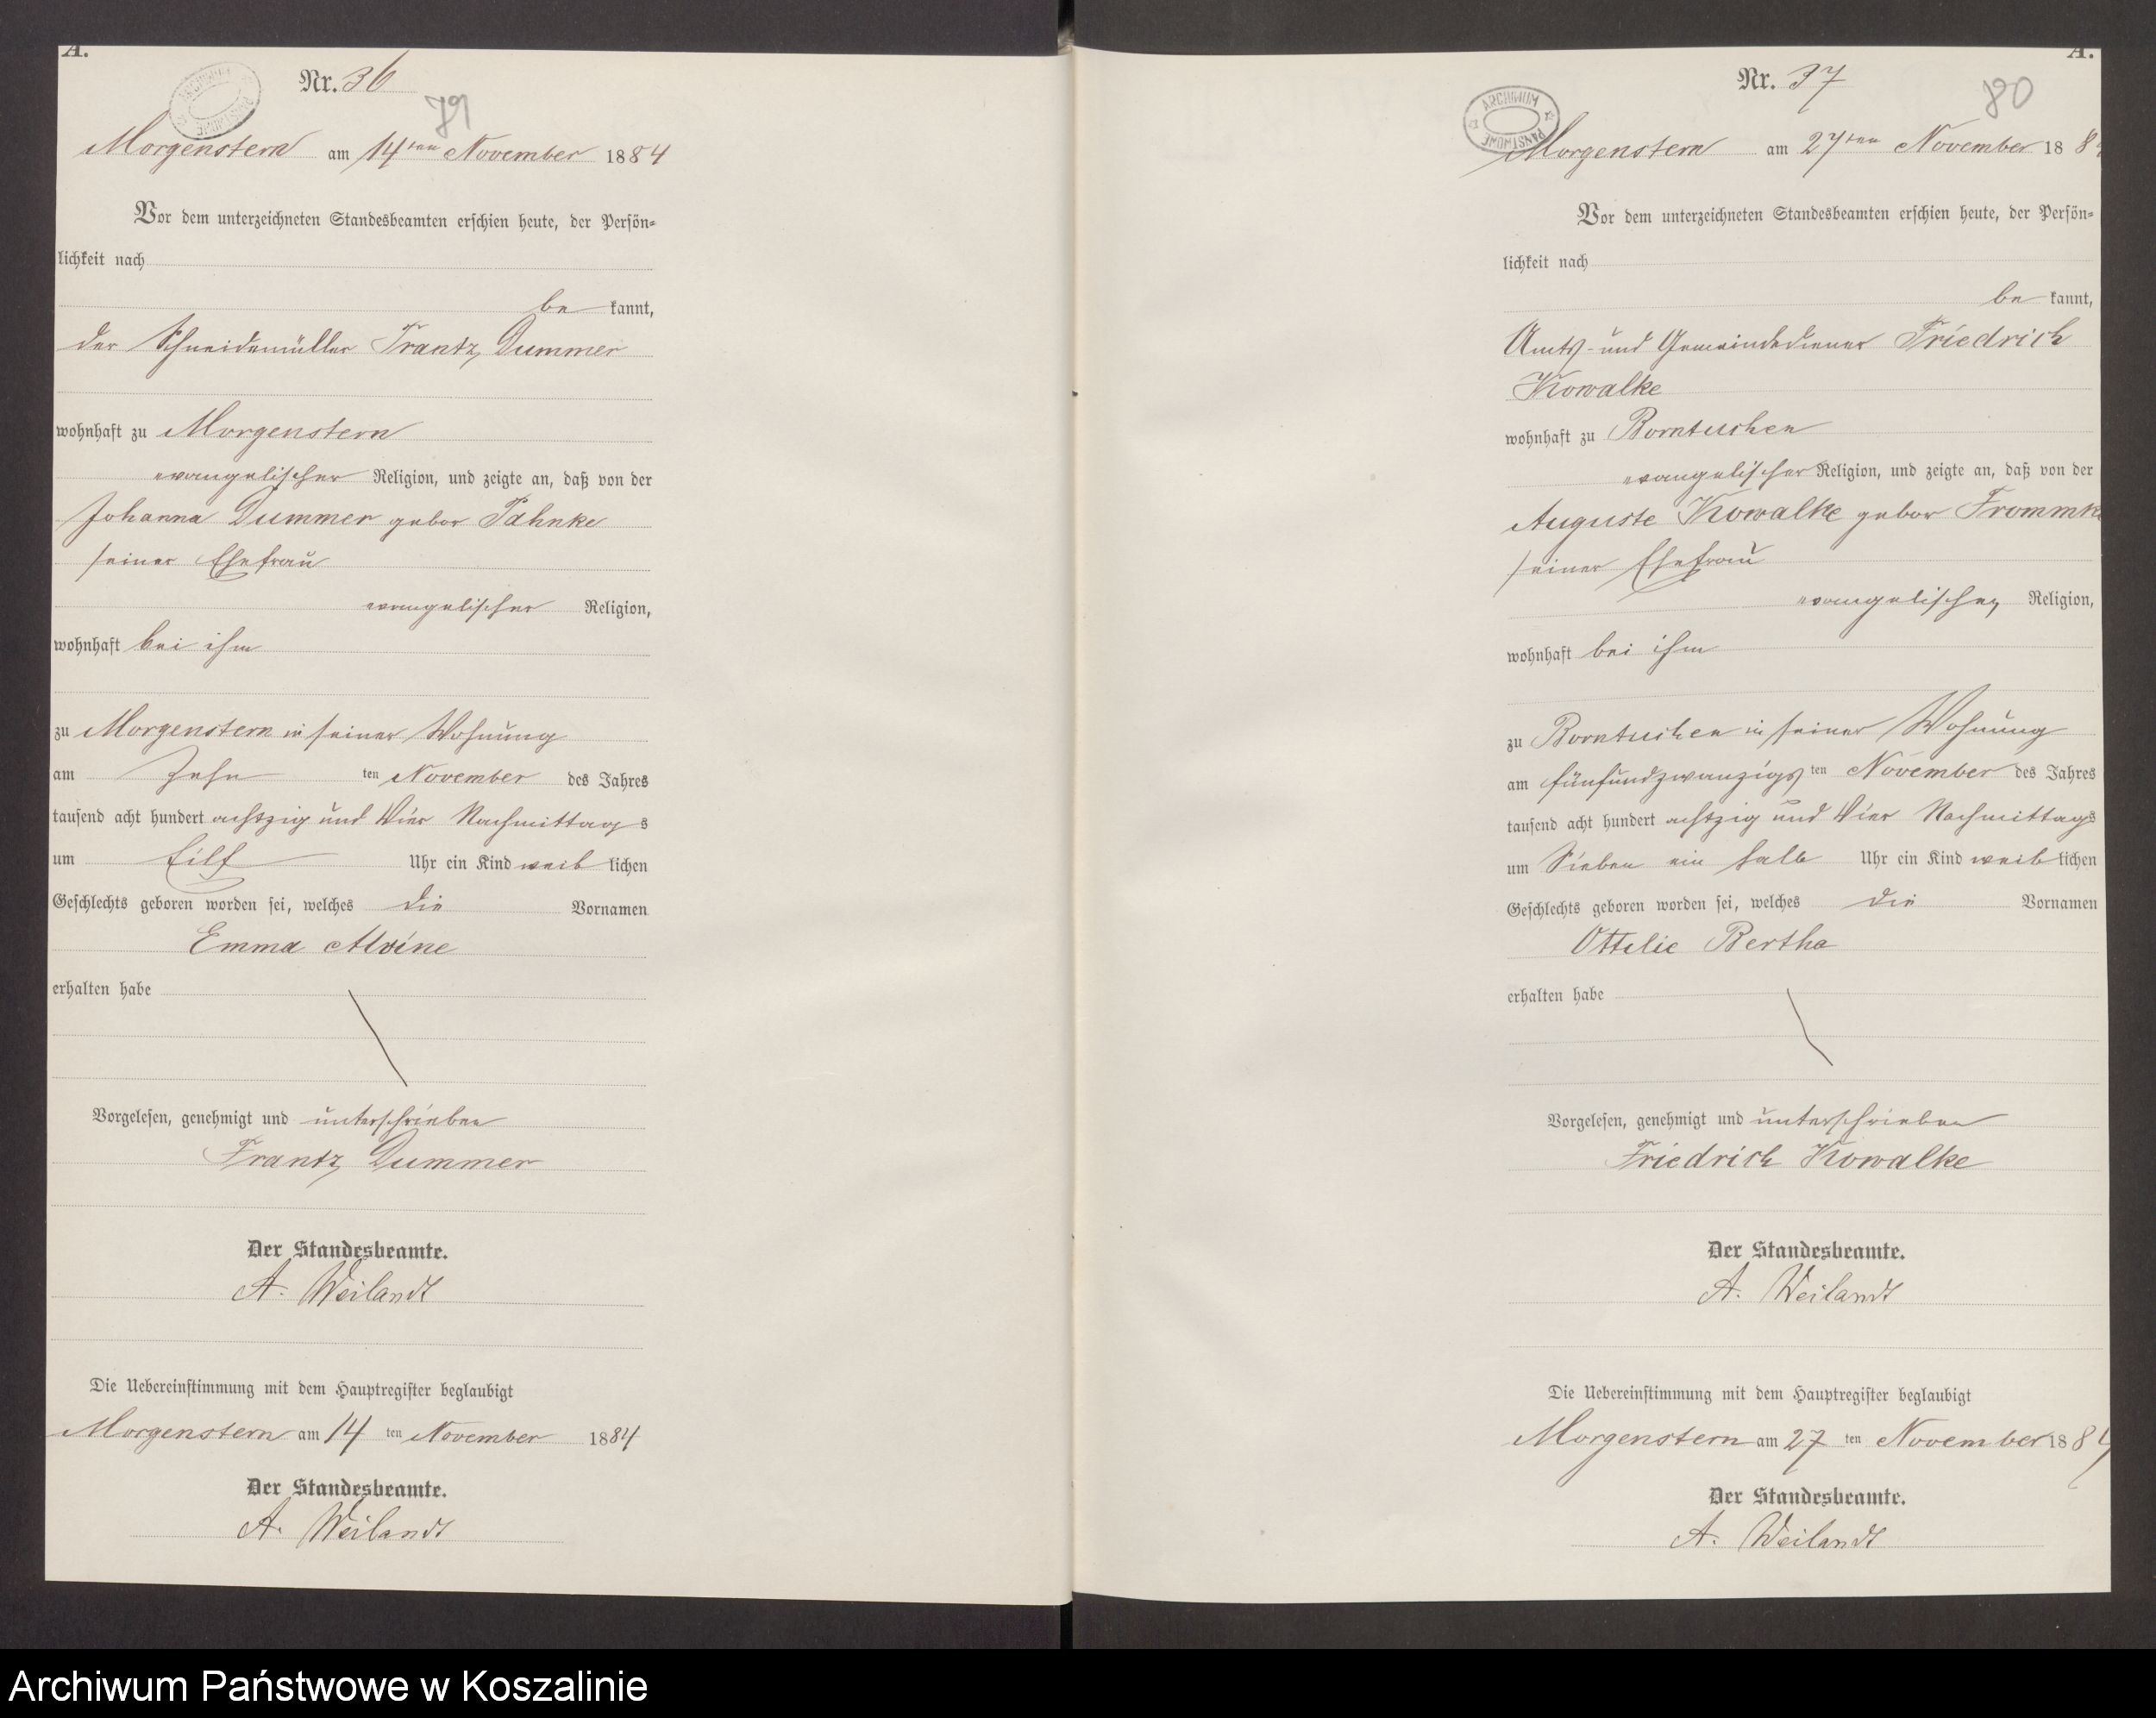 A.
Nr. 36
79
Morgenstern am 14ten November 1884
Vor dem unterzeichneten Standesbeamten erschien heute, der Persön-
lichkeit nach
be kannt,
der Schneidemüller Frantz Dummer
wohnhaft zu Morgenstern
evangelischer Religion, und zeigte an, daß von der
Johanna Dummer gebor Pahnke
seiner Ehefrau
evangelischer Religion,
wohnhaft bei ihm
zu Morgenstern in seiner Wohnung
am Zehn ten November des Jahres
tausend acht hundert achtzig und Vier Nachmittags
um Eilf Uhr ein Kind weib lichen
Geschlechts geboren worden sei, welches die Vornamen
Emma Alvine
erhalten habe
Vorgelesen, genehmigt und unterschrieben
Frantz Dummer
Der Standesbeamte.
A. Weilandt
Die Uebereinstimmung mit dem Hauptregister beglaubigt
Morgenstern am 14 ten November 1884
Der Standesbeamte.
A. Weilandt
A.
Nr. 37
80
ARCHIWUM PAŃSTWOWE
Morgenstern am 27ten November 188
Vor dem unterzeichneten Standesbeamten erschien heute, der Persön-
lichkeit nach
be kannt,
Amts- und Gemeindediener Friedrich
Kowalke
wohnhaft zu Borntuchen
evangelischer Religion, und zeigte an, daß von der
Auguste Kowalke gebor Frommk
seiner Ehefrau
evangelischer Religion,
wohnhaft bei ihm
zu Borntuchen in seiner Wohnung
am fünfundzwanzigs ten November des Jahres
tausend acht hundert achtzig und Vier Nachmittags
um Sieben ein halb Uhr ein Kind weib lichen
Geschlechts geboren worden sei, welches die Vornamen
Ottilie Bertha
erhalten habe
Vorgelesen, genehmigt und unterschrieben
Friedrich Kowalke
Der Standesbeamte.
A. Weilandt
Die Uebereinstimmung mit dem Hauptregister beglaubigt
Morgenstern am 27 ten November 1884
Der Standesbeamte.
A. Weilandt
Archiwum Państwowe w Koszalinie